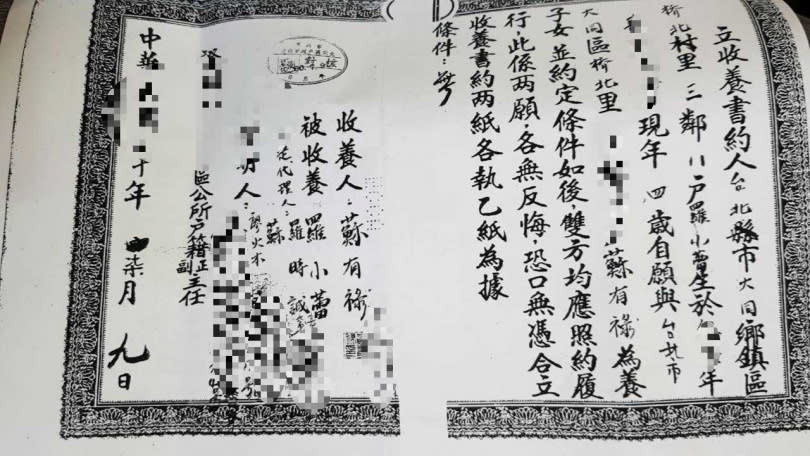 立收養書約人台北縣市大同鄉鎮區
桥北村里三鄰八戶羅小蕾生於年
現年四歲自願與台北市
大同區桥北里蘇有祿為養
子女並約定條件如後雙方均應照約履
行,此係两願,各無反悔,恐口無憑合立
收養書約两紙各執乙紙為據
條件:無
收養人:蘇有祿
被收養羅小蕾
代理人:羅時誠
蘇
人:廖火木
區公所戶籍正副主任
中華十年柒月九日